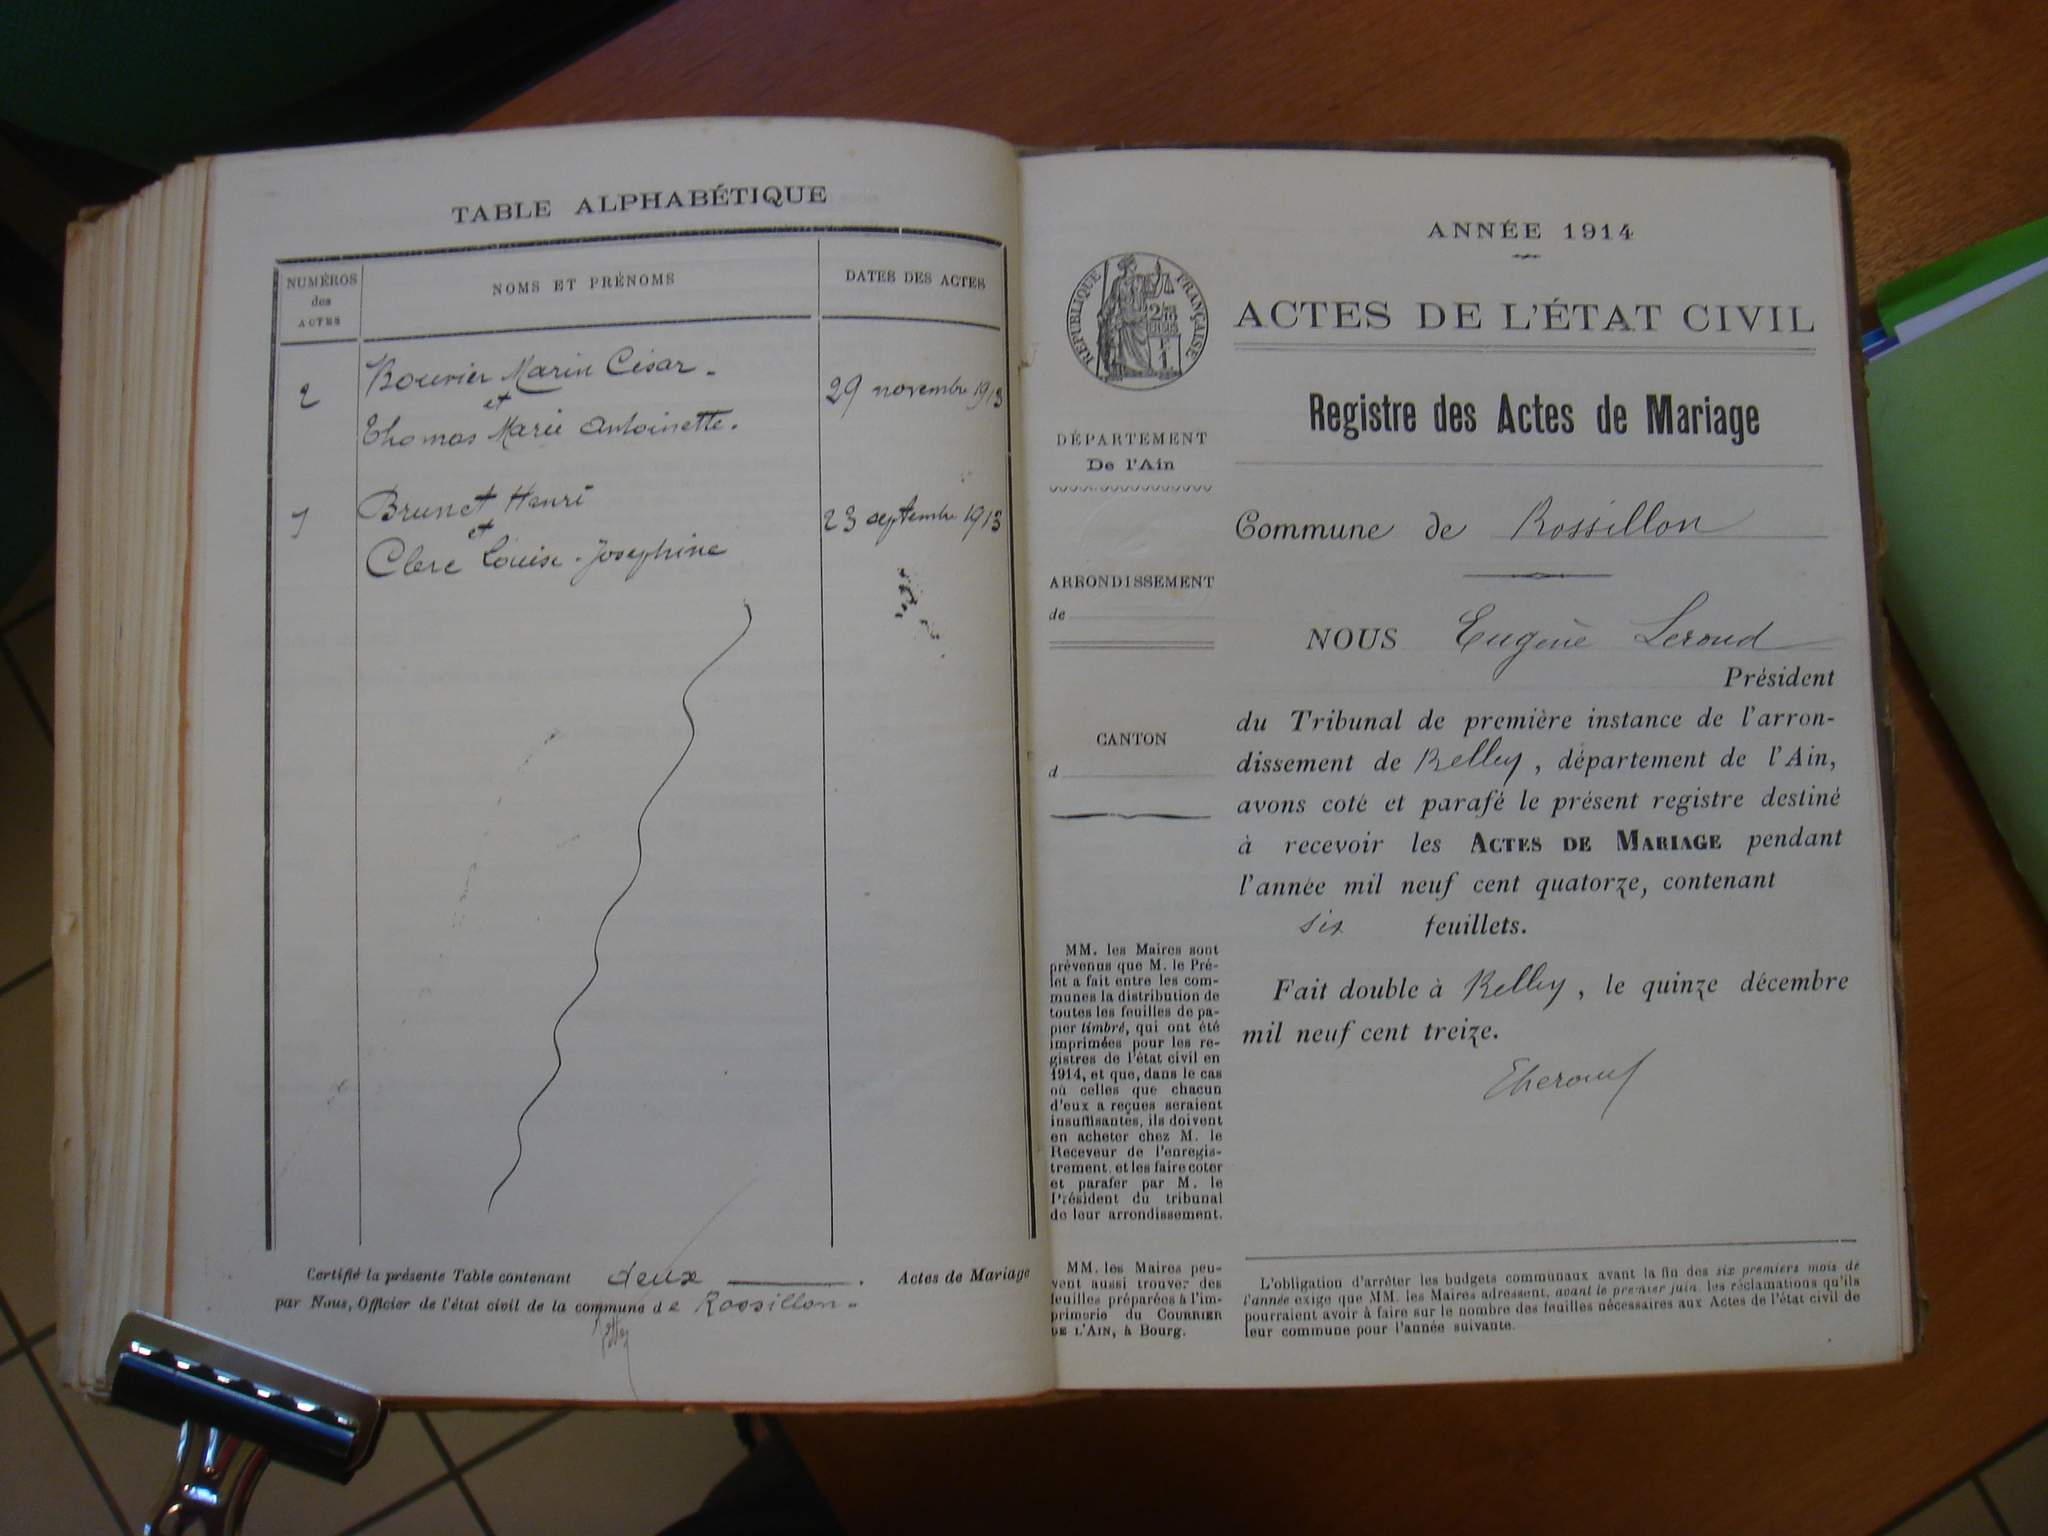 TABLE ALPHABÉTIQUE
NUMÉROS
des
ACTES
NOMS ET PRÉNOMS
DATES DES ACTES
2
Bouvier Marin César.
et
Thomas Marie Antoinette.
29 novembre 1913
1
Brunet Henri
et
Clerc Louise-Josephine
23 septembre 1913
Certifié la présente Table contenant deux Actes de Mariage
par Nous, Officier de l'état civil de la commune de Rossillon.
ANNÉE 1914
RÉPUBLIQUE FRANÇAISE
ACTES DE L'ÉTAT CIVIL
Registre des Actes de Mariage
DÉPARTEMENT
De l'Ain
ARRONDISSEMENT
de
CANTON
d
Commune de Rossillon
NOUS Eugène Leroud
Président
du Tribunal de première instance de l'arron-
dissement de Belley, département de l'Ain,
avons coté et parafé le présent registre destiné
à recevoir les ACTES DE MARIAGE pendant
l'année mil neuf cent quatorze, contenant
six feuillets.
Fait double à Belley, le quinze décembre
mil neuf cent treize.
MM. les Maires sont
prévenus que M. le Pré-
fet a fait entre les com-
munes la distribution de
toutes les feuilles de pa-
pier timbré, qui ont été
imprimées pour les re-
gistres de l'état civil en
1914, et que, dans le cas
où celles que chacun
d'eux a reçues seraient
insuffisantes, ils doivent
en acheter chez M. le
Receveur de l'enregis-
trement, et les faire coter
et parafer par M. le
Président du tribunal
de leur arrondissement.
MM. les Maires peu-
vent aussi trouver des
feuilles préparées à l'im-
primerie du COURRIER
DE L'AIN, à Bourg.
L'obligation d'arrêter les budgets communaux avant la fin des six premiers mois de
l'année exige que MM. les Maires adressent, avant le premier juin, les réclamations qu'ils
pourraient avoir à faire sur le nombre des feuilles nécessaires aux Actes de l'état civil de
leur commune pour l'année suivante.